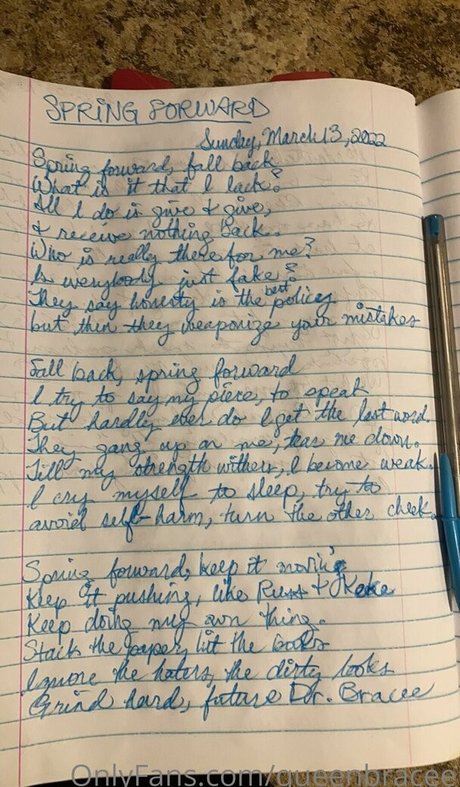 SPRING FORWARD
Sunday, March 13, 2022
Spring forward, fall back
What is it that I lack?
All I do is give & give,
& receive nothing back.
Who is really there for me?
Is everybody just fake?
They say honesty is the best policy
but then they weaponize your mistakes
Fall back, spring forward
I try to say my piece, to speak
But hardly ever do I get the last word.
They gang up on me, tear me down.
Till my strength withers, I become weak.
I cry myself to sleep, try to
avoid self-harm, turn the other cheek.
Spring forward, keep it moving
Keep it pushing, like Russ & Keke
Keep doing my own thing.
Stack the paper, hit the books
Ignore the haters, the dirty looks
Grind hard, future Dr. Bracee
OnlyFans.com/queenbracee